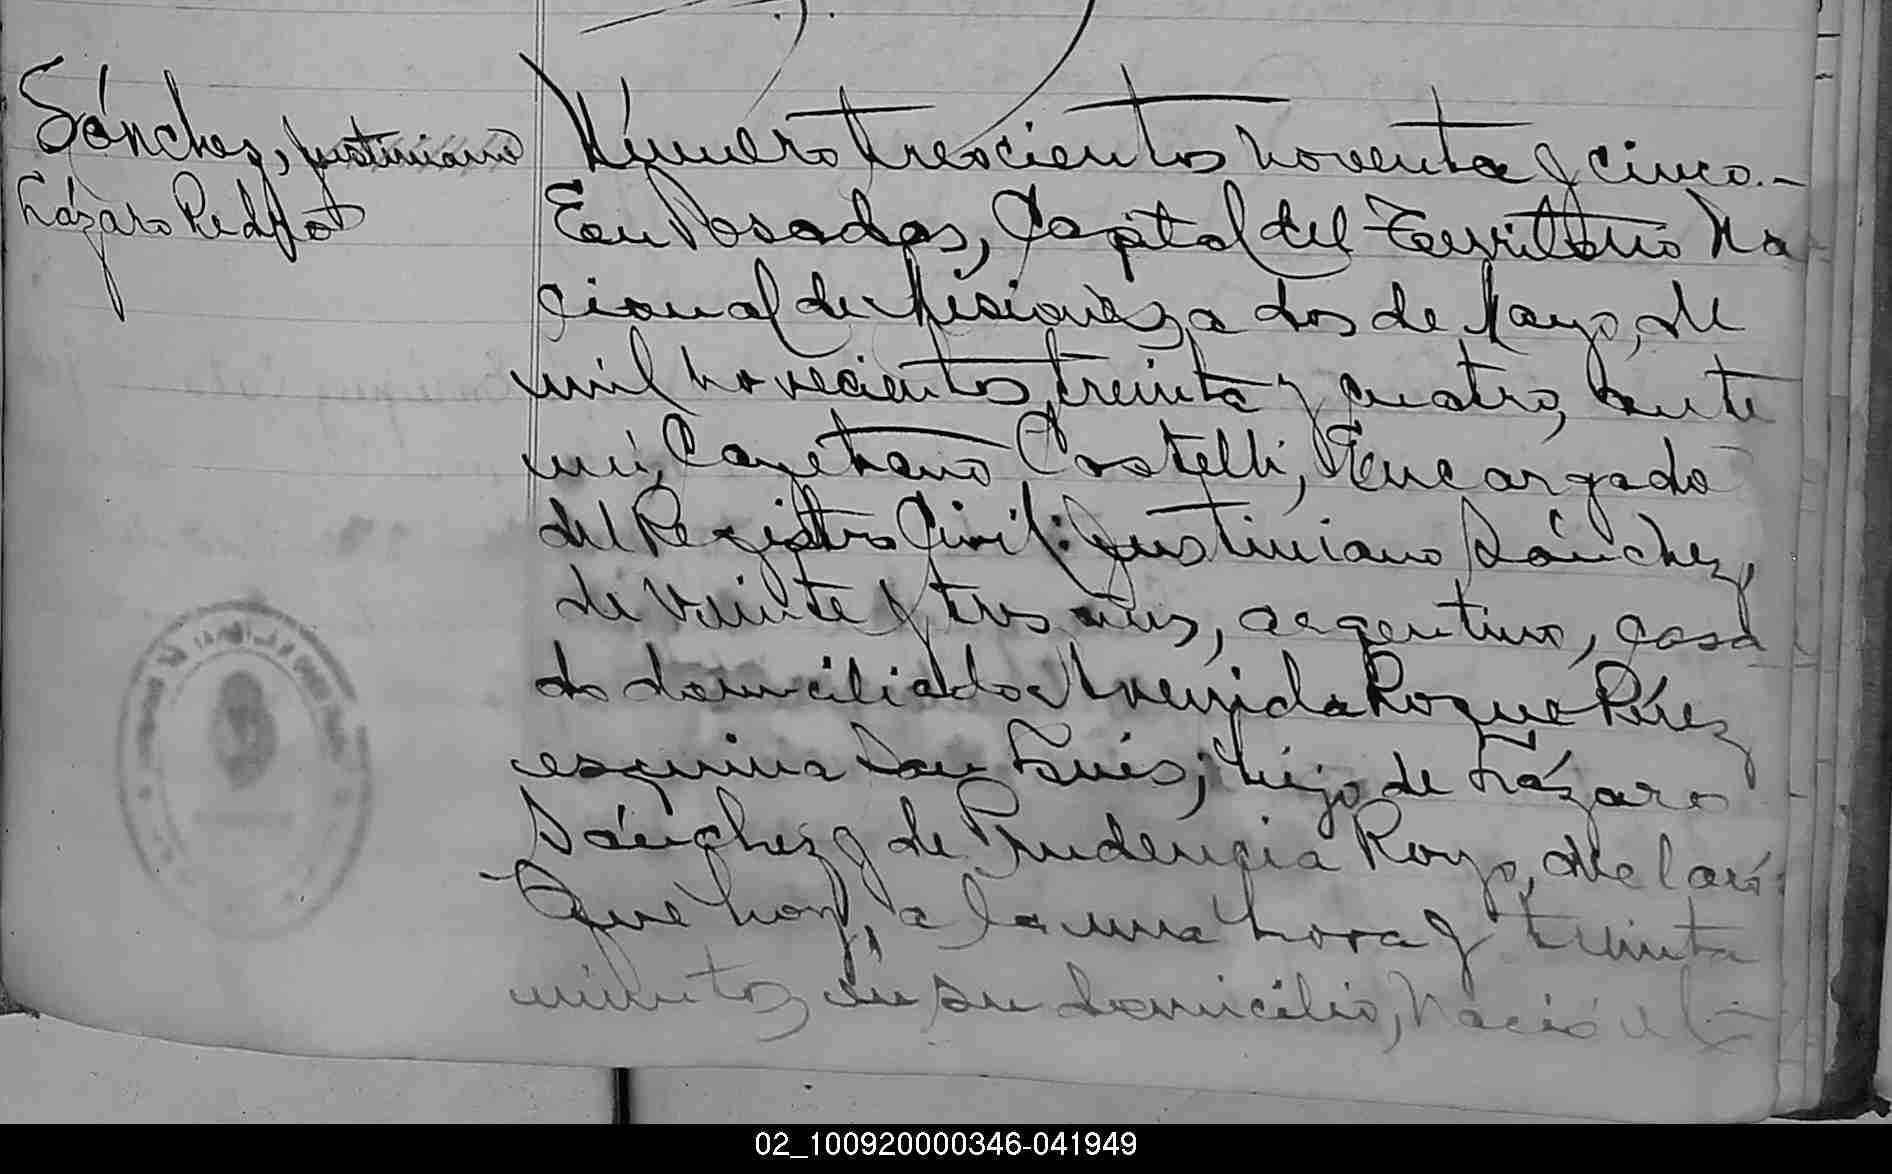 Sánchez, Justiniano
Lázaro
Número trescientos noventa y cinco.-
En Posadas, Capital del Territorio Na
cional de Misiones, a dos de Mayo, de
mil novecientos treinta y cuatro, ante
mí, Cayetano Castelli, Encargado
del Registro Civil: Justiniano Sánchez,
de veinte y tres años, argentino, casa
do domiciliado Avenida Roque Pérez
esquina San Luis; hijo de Lázaro
Sánchez y de Prudencia Royo, declaró:
Que hoy, a la una hora y treinta
minutos, en su domicilio, nació
02_100920000346-041949